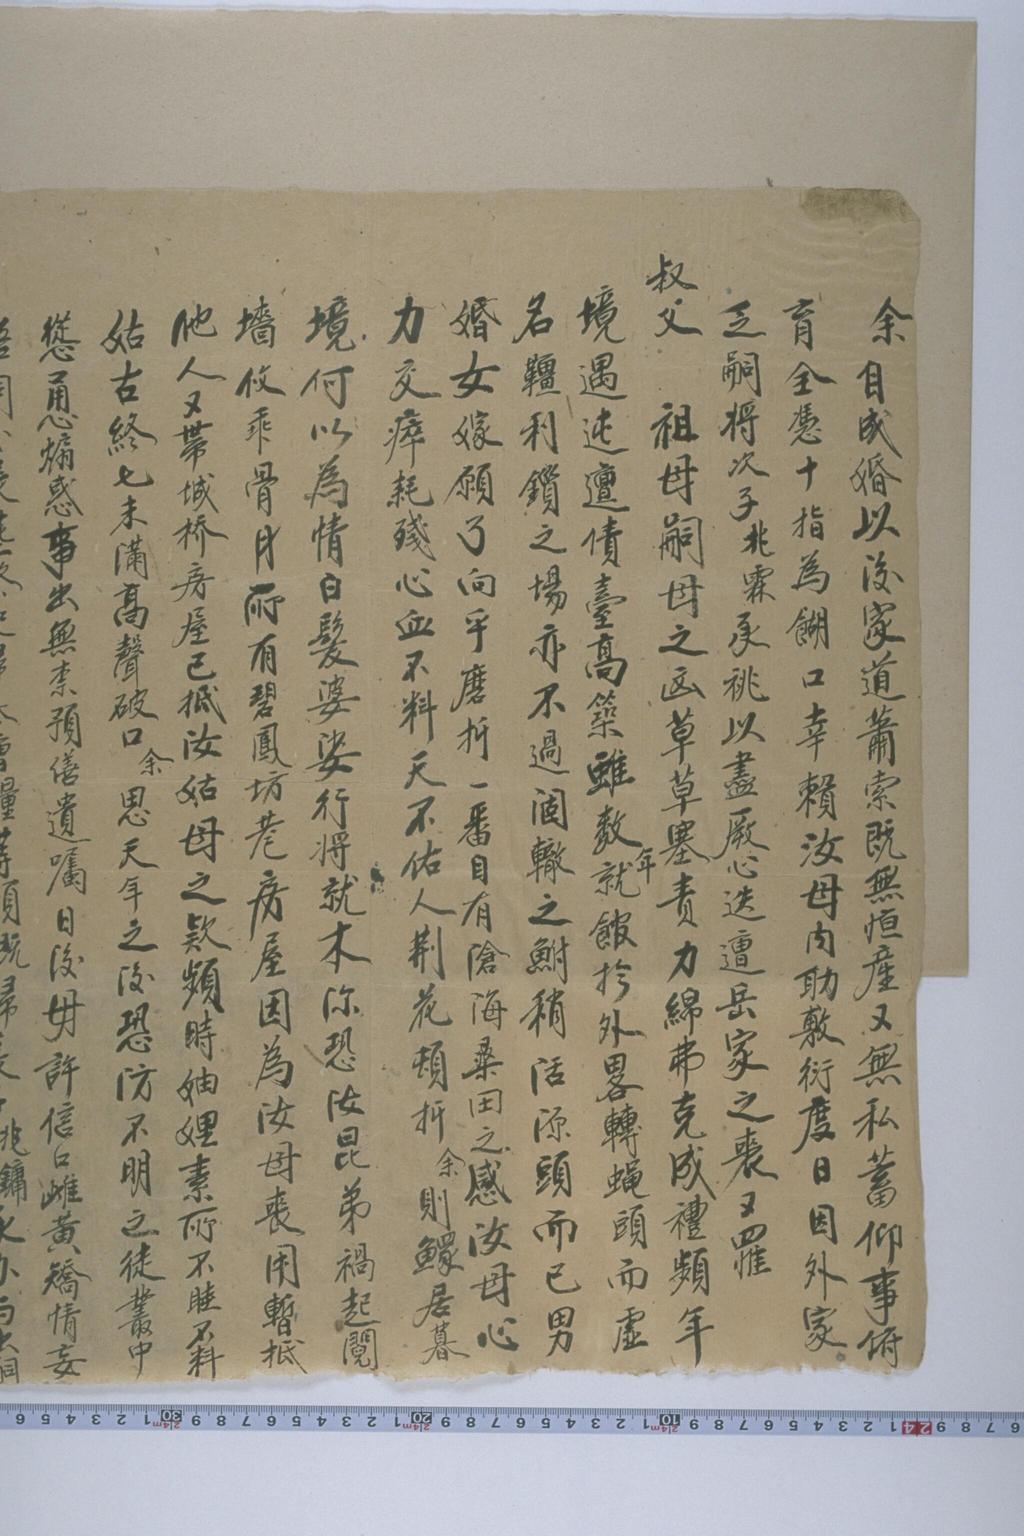 余自成婚以後家道蕭索既無恒產又無私蓄仰事俯
育全憑十指為餬口幸賴汝母內助敷衍度日因外家
乏嗣將次子兆霖承祧以盡厥心迭遭岳家之喪又罹
叔父 祖母嗣母之凶草草塞責力綿弗克成禮頻年
境遇迍邅債臺高築雖數年就館於外畧轉蝇頭而虛
名韁利鎖之場亦不過涸轍之鮒稍活源頭而已男
婚女嫁願了向平磨折一番自有滄海桑田之感汝母心
力交瘁耗殘心血不料天不佑人荆花頓折余則鰥居暮
境何以為情白髮婆娑行將就木深恐汝昆弟禍起鬩
墻攸乖骨月所有碧鳳坊巷房屋因為汝母喪用暫抵
他人又帶城桥房屋已抵汝姑母之欵頻時妯娌素所不睦不料
姑古終七未滿高聲破口余思天年之後恐防不明之徒叢中
慫恿煽惑事出無柰預繕遺囑日後毋許信口雌黃矯情妄